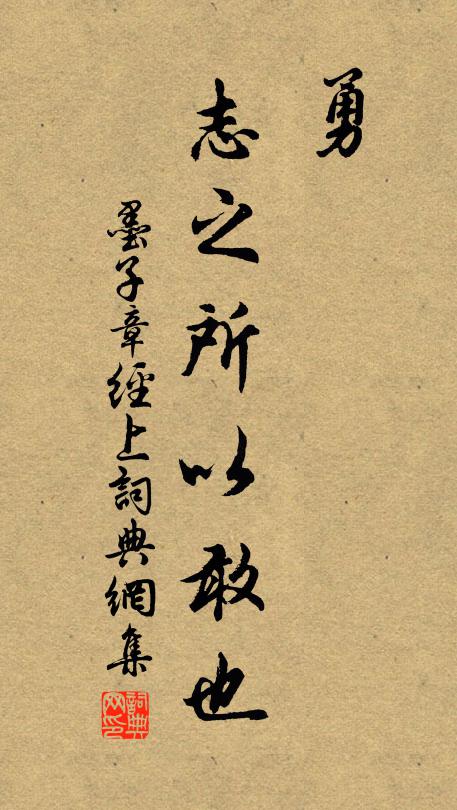 勇
志之所以敢也
墨子章經上詞典網集
詞典
网印